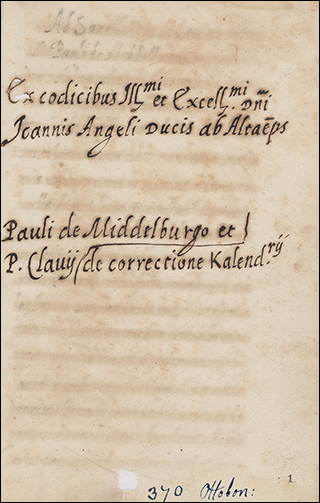 Ex codicibus Ill^mi et Excell^mi. Dñi
Joannis Angeli Ducis ab Altaēps
Pauli de Middelburgo et
P. Clavij de correctione Kalend.^rij
1
370 Ottobon: